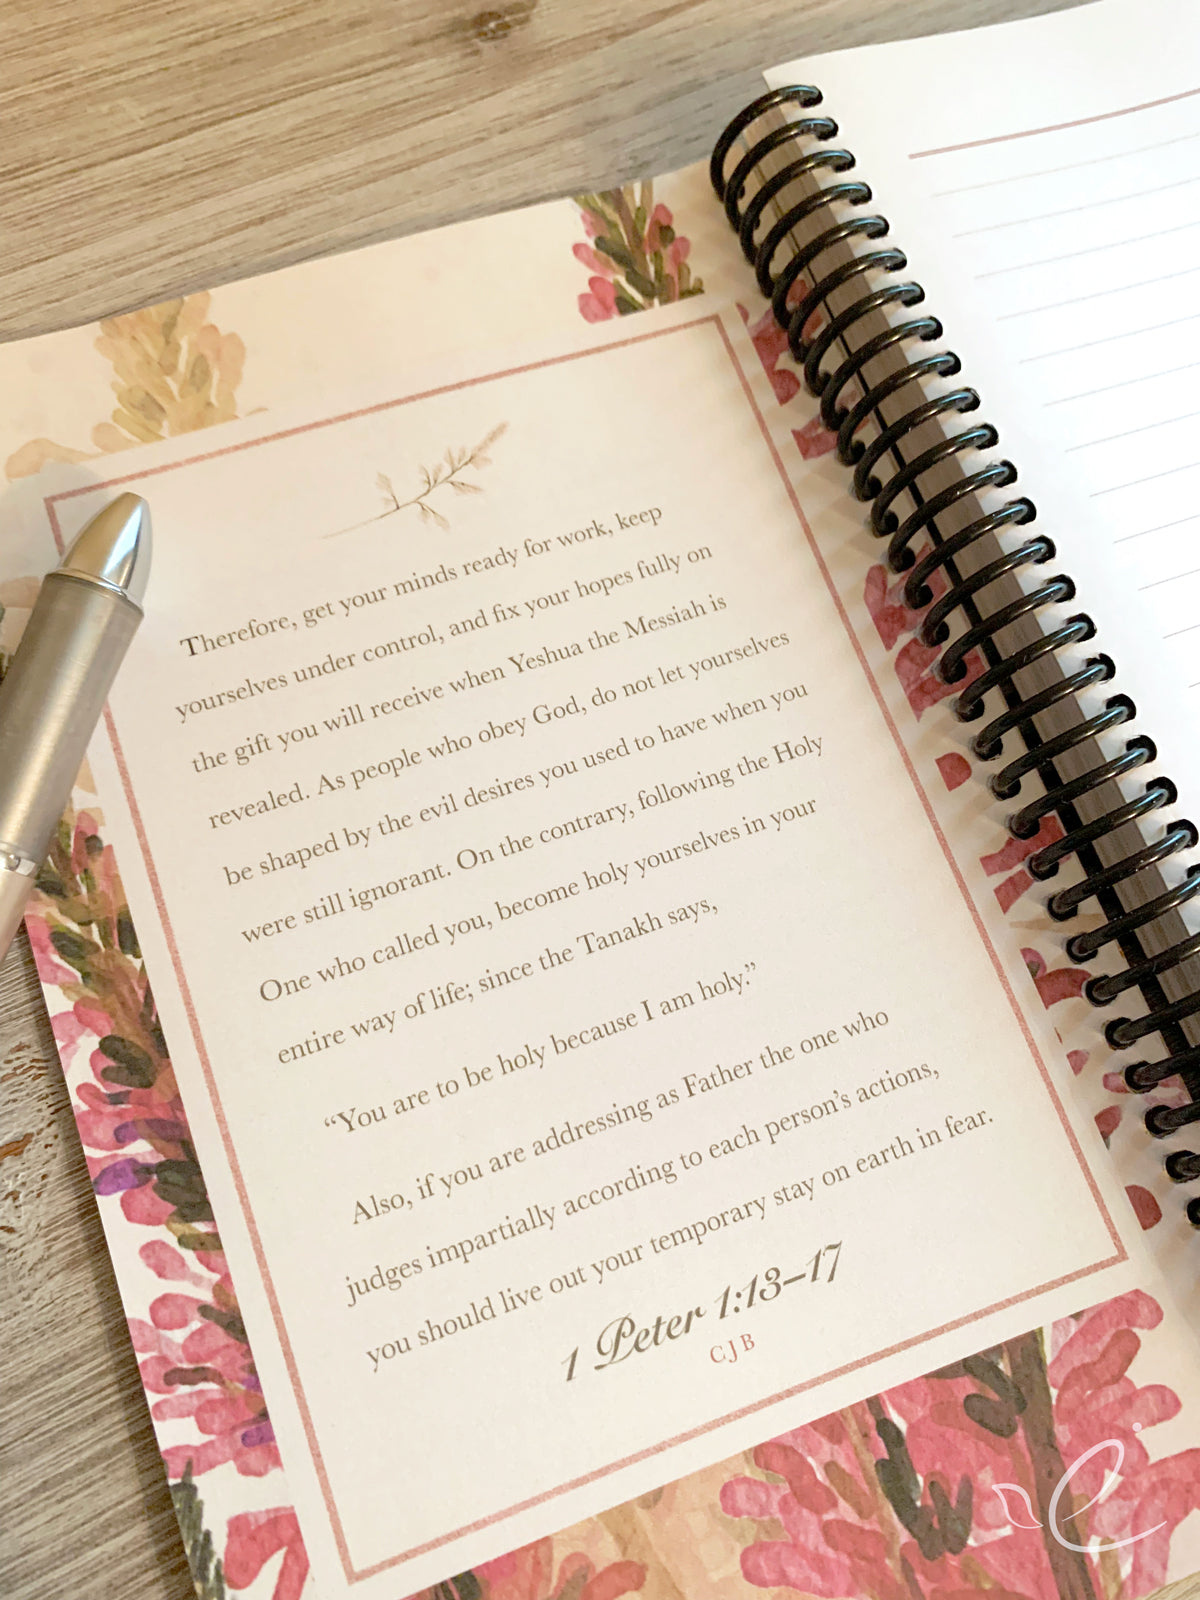 Therefore, get your minds ready for work, keep
yourselves under control, and fix your hopes fully on
the gift you will receive when Yeshua the Messiah is
revealed. As people who obey God, do not let yourselves
be shaped by the evil desires you used to have when you
were still ignorant. On the contrary, following the Holy
One who called you, become holy yourselves in your
entire way of life; since the Tanakh says,
“You are to be holy because I am holy.”
Also, if you are addressing as Father the one who
judges impartially according to each person’s actions,
you should live out your temporary stay on earth in fear.
1 Peter 1:13–17
CJB